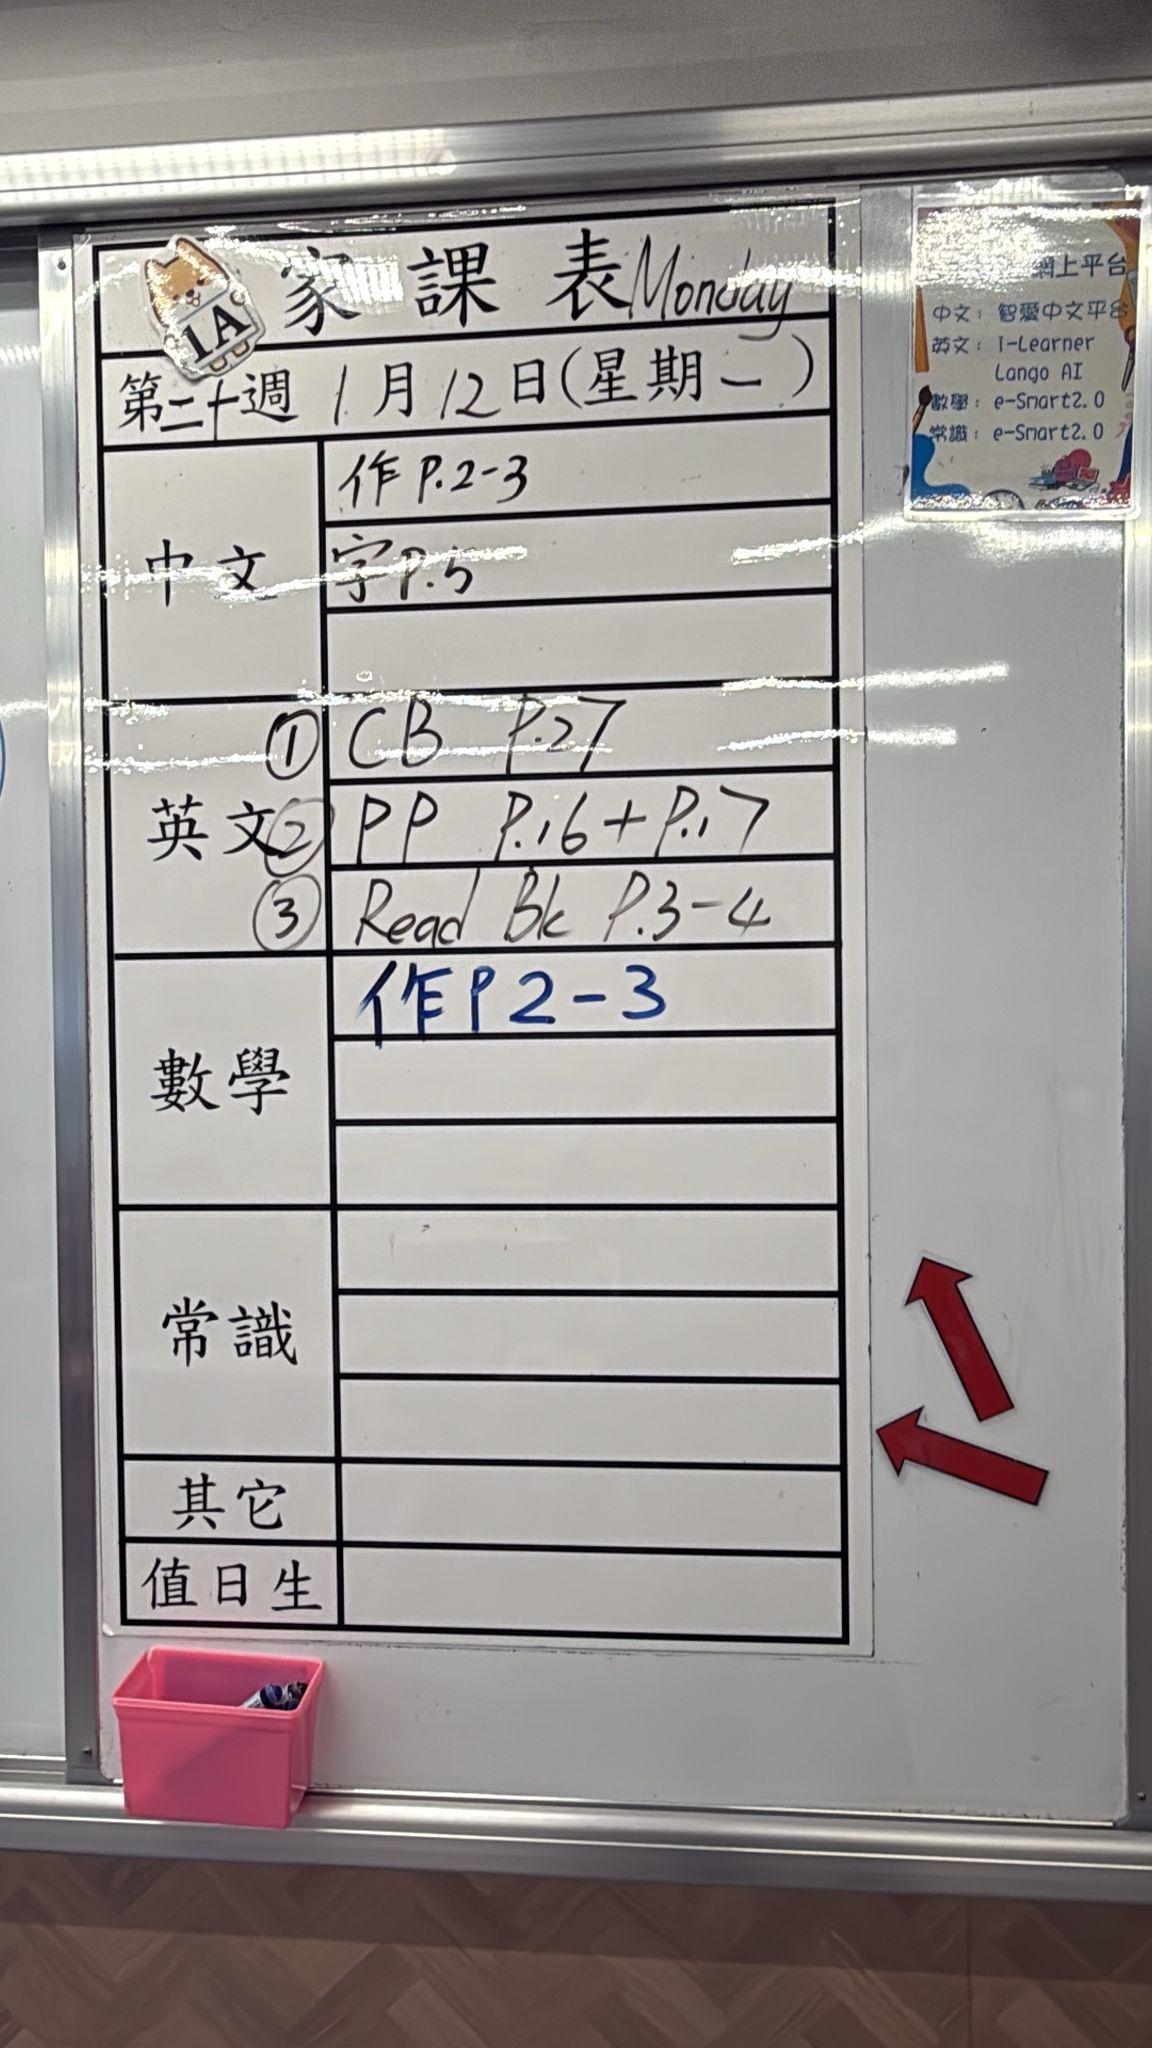 1A
家課表 Monday
第二十週 1月12日(星期一)
中文
作 P.2-3
字 P.5
英文
① CB P.27
② PP P.16+P.17
③ Read Bk P.3-4
數學
作 P 2-3
常識
其它
值日生
網上平台
中文: 智愛中文平台
英文: i-Learner
Lango AI
數學: e-Smart2.0
常識: e-Smart2.0